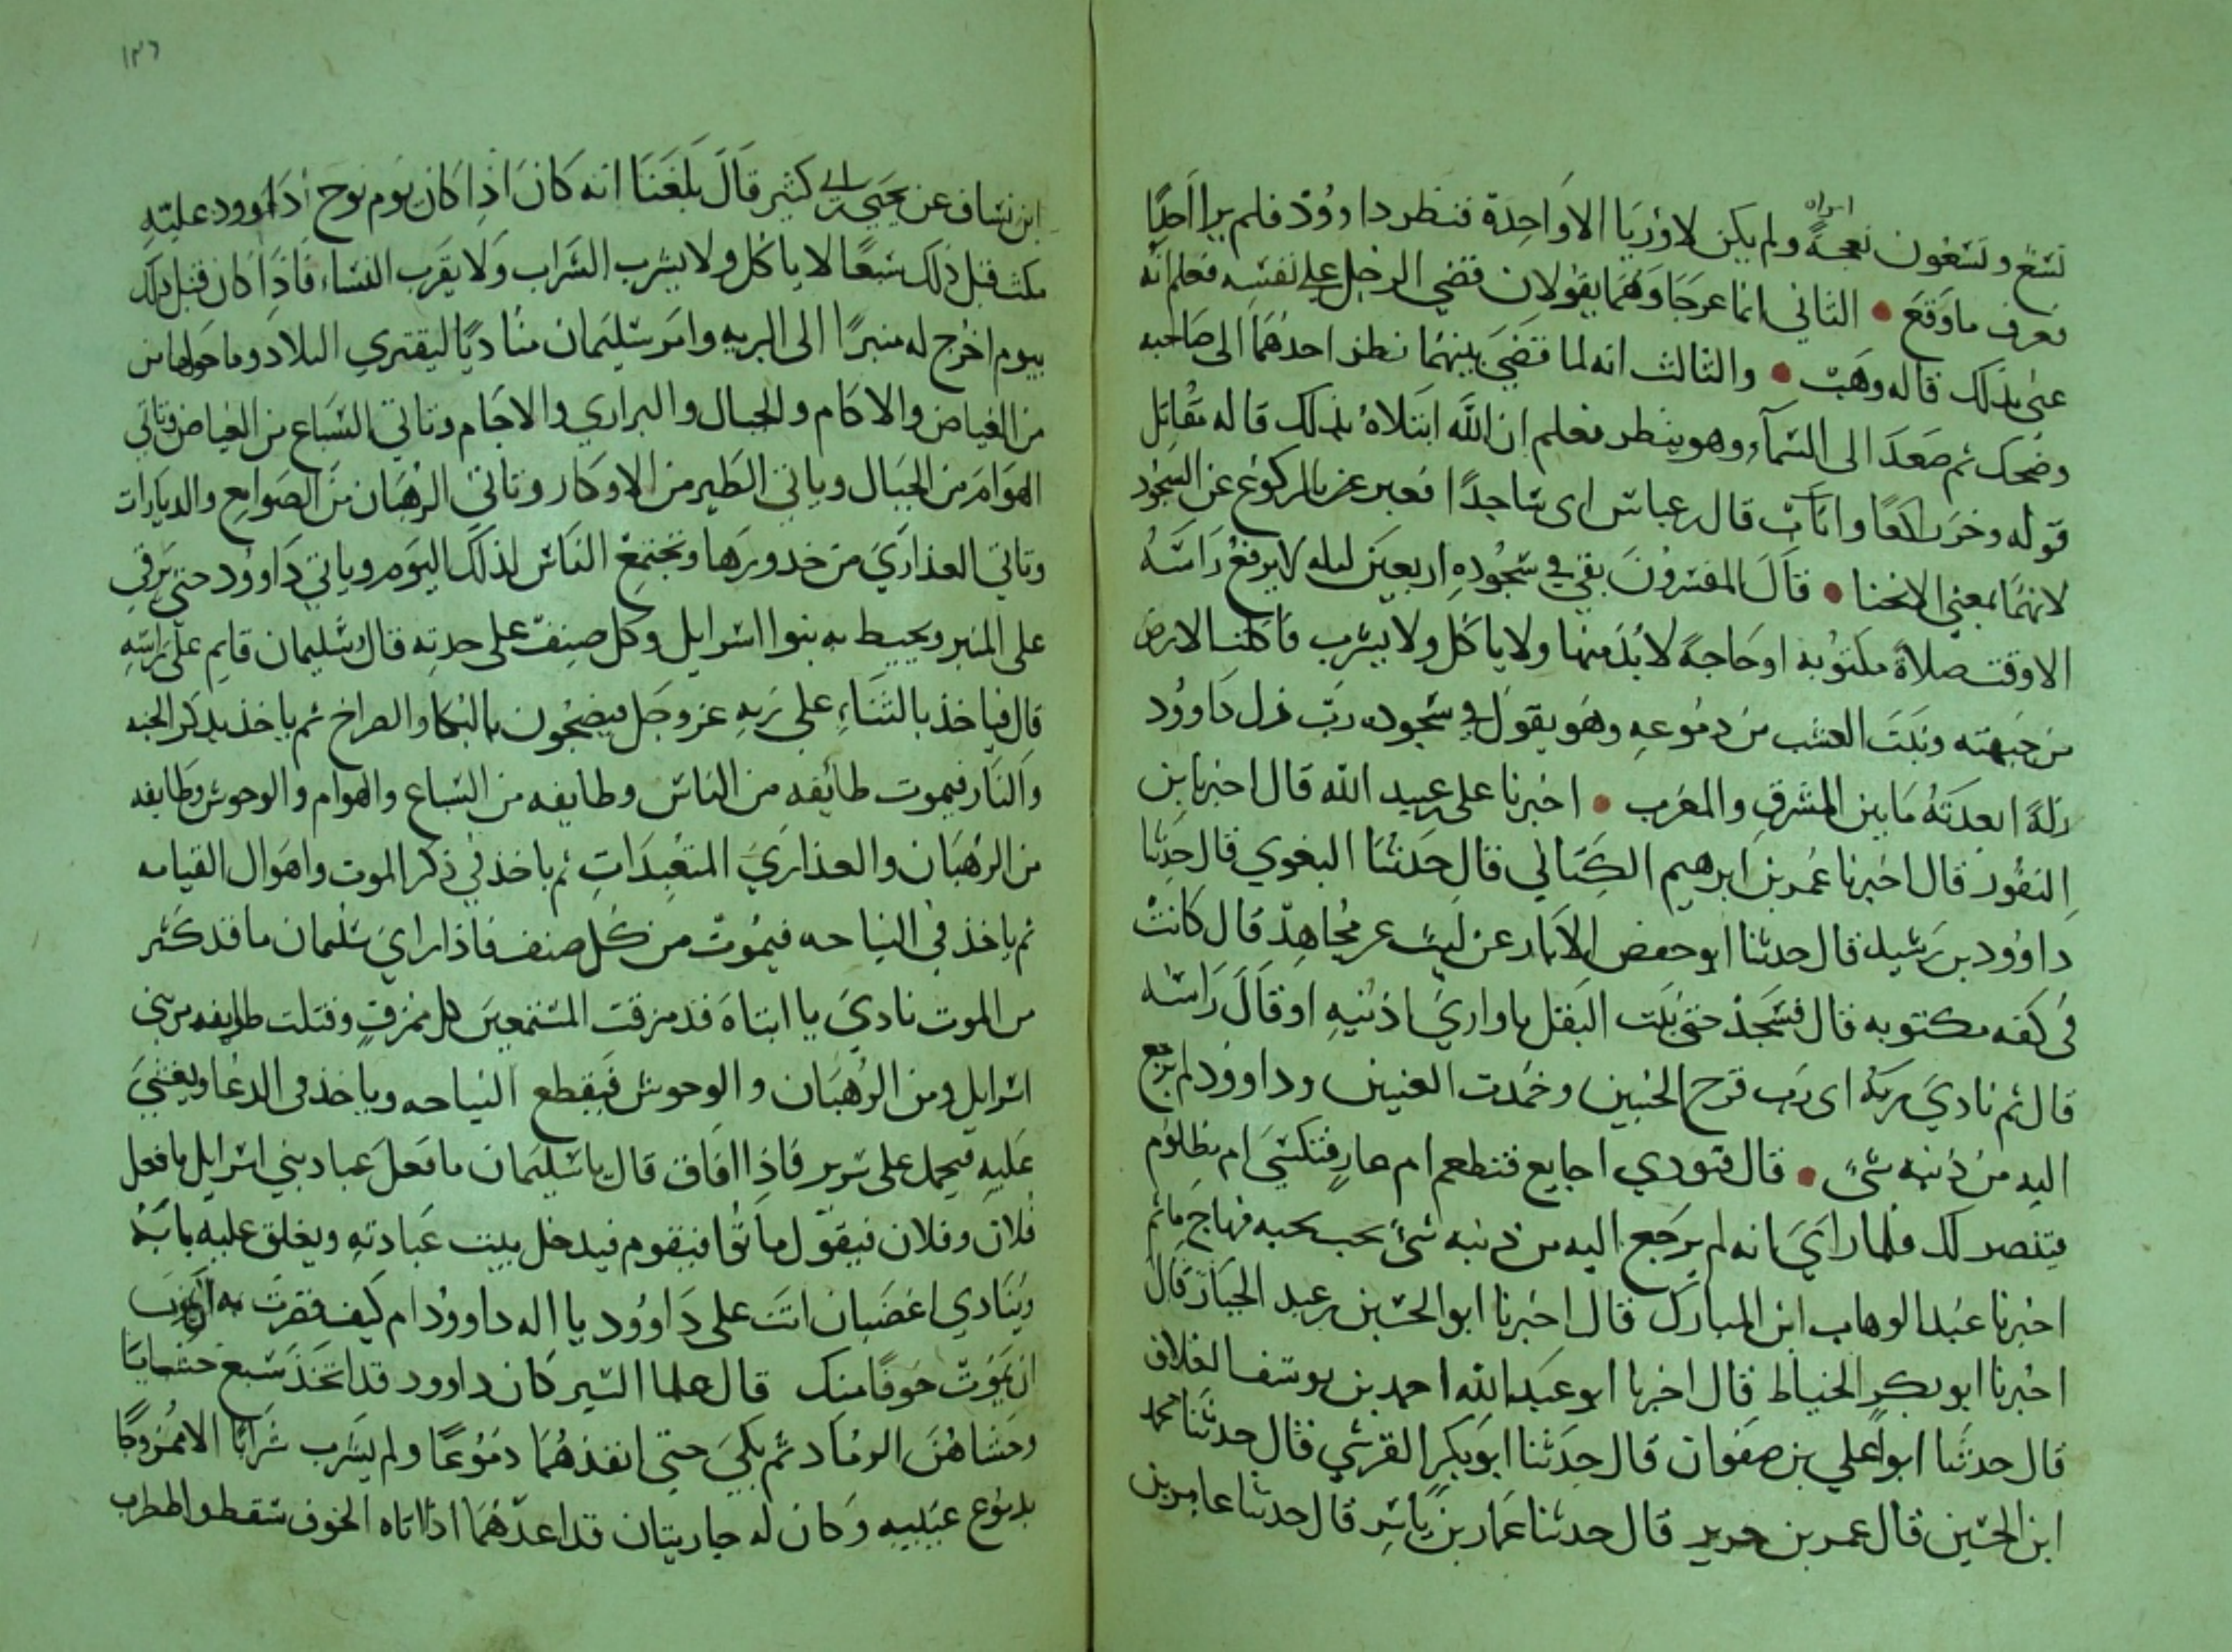 تسع وتسعون نعجة ولم يكن لاوريا الا واحدة فنظر داوود فلم ير احدًا
امراه
فعرف ما وقع • الثاني انما عرجا وهما يقولان قضي الرجل علي نفسه فعلم انه
عني بذلك قاله وهب • والثالث انه لما قضي بينهما نظر احدهما الى صاحبه
وضحك ثم صعد الى السمآء وهو ينظر فعلم ان الله ابتلاه بذلك قاله مقاتل
قوله وخر راكعًا واناب قال بن عباس اى ساجدًا فعبر عن بالركوع عن السجود
لانهما بمعني الانحنا • قال المفسرون بقي في سجوده اربعين ليله لا يرفع راسه
الا وقت صلاة مكتوبة او حاجة لا بد منها ولا ياكل ولا يشرب فاكلت الارض
من جبهته ونبت العشب من دموعه وهو يقول في سجوده رب زل داوود
زلة ابعدته ما بين المشرق والمغرب • اخبرنا على بن عبيد الله قال اخبرنا بن
النقور قال اخبرنا عمر بن ابرهيم الكتاني قال حدثنا البغوي قال حدثنا
داوود بن رشيد قال حدثنا ابو حفص الابار عن ليث عن مجاهد قال كانت
فى كفه مكتوبه قال فسجد حتي نبت البقل ما وارى اذنيه او قال راسه
قال ثم نادي ربه اى رب قرح الجبين وخمدت العينين وداوود لم يرجع
اليه من ذنبه شئ • قال فنودي اجايع فتطعم ام عار فتكسي ام مظلوم
فتنصر لك فلما راي انه لم يرجع اليه من ذنبه شئ نحب نحبه فهاج ما ثم
اخبرنا عبد الوهاب ابن المبارك قال اخبرنا ابو الحسين بن عبد الجبار قال
اخبرنا ابو بكر الخياط قال اخبرنا ابو عبد الله احمد بن يوسف العلاف
قال حدثنا ابو اعلي بن صفوان قال حدثنا ابو بكر القرشي قال حدثنا محمد
ابن الحسين قال عمر بن جرير قال حدثنا عمار بن ياسر قال حدثنا عامر بن
ابن يساف عن يحيى بن ابي كثير قال بلغنا انه كان اذا كان يوم نوح داوود عليه
مكث قبل ذلك سبعًا لا ياكل ولا يشرب الشراب ولا يقرب النساء فاذا كان قبل ذلك
بيوم اخرج له منبرًا الى البريه وامر سليمان مناديًا ليقتري البلاد وما حولها من
من الغياض والاكام والجبال والبراري والاجام وتاتي السباع من الغياض وتاتي
الهوام من الجبال وياتي الطير من الاوكار وتاتي الرهبان من الصوامع والديارات
وتاتي العذاري من خدورها وتجتمع الناس لذلك اليوم وياتي داوود حتي يرقي
على المنبر ويحيط به بنوا اسرايل وكل صنف على حدته قال وسليمان قايم على راسه
قال فياخذ بالثناء علي ربه عز وجل فيضجون بالبكا والصراخ ثم ياخذ بذكر الجنه
والنار فيموت طائفه من الناس وطايفه من السباع والهوام والوحوش وطايفه
من الرهبان والعذاري المتعبدات ثم ياخذ في ذكر الموت واهوال القيامه
ثم ياخذ في النياحه فيموت من كل صنف فاذا راي سليمان ما قد كثر
من الموت نادي يا ابتاه قد مزقت المستمعين كل ممزق وقتلت طايفه من بني
اسرايل ومن الرهبان والوحوش فيقطع النياحه وياخذ فى الدعا ويغشي
عليه فيحمل على سرير فاذا افاق قال يا سليمان ما فعل عباد بني اسرايل ما فعل
فلان وفلان فيقول ماتوا فيقوم فيدخل بيت عبادته ويغلق عليه بابه
وينادي اغضبان انت على داوود يا اله داوود ام كيف قصرت به
ان يموت خوفًا منك قال علما السير كان داوود قد اتخذ سبع حشايا
وحشاهن الرماد ثم بكي حتى انفذهما دموعًا ولم يشرب شرابًا الا ممزوجًا
بدموع عينيه وكان له جاريتان قد اعدهما اذا اتاه الخوف سقط واضطرب
١٣٦